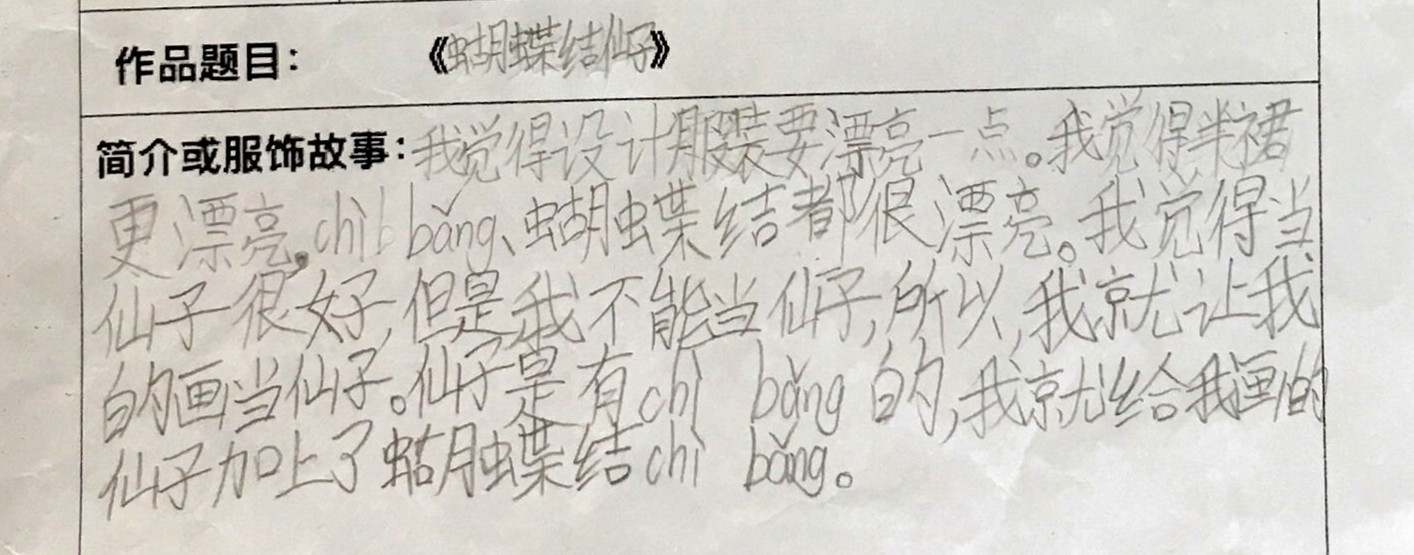 作品题目：《蝴蝶结仙子》
简介或服饰故事：我觉得设计服装要漂亮一点。我觉得半裙
更漂亮。chì bǎng、蝴蝶结都很漂亮。我觉得当
仙子很好,但是我不能当仙子,所以,我就让我
的画当仙子。仙子是有chì bǎng的,我就给我画的
仙子加上了蝴蝶结chì bǎng。